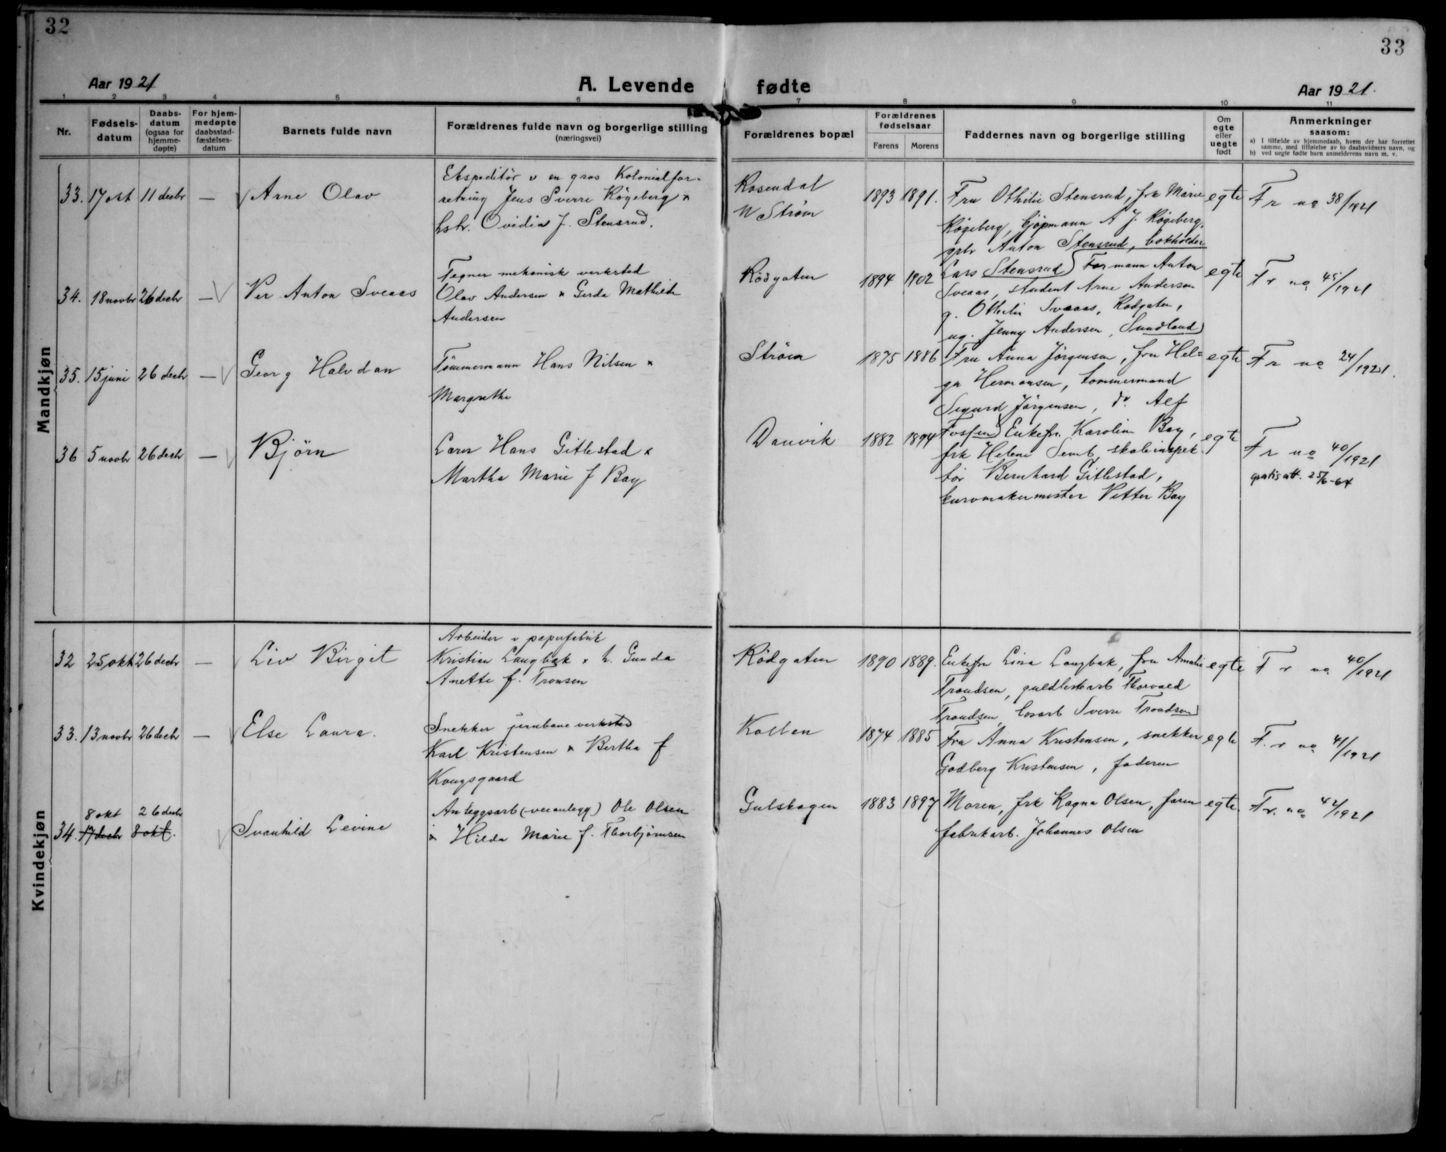 32
33
Aar 1921
A. Levende fødte
Aar 1921.
1 2 3 4 5 6 7 8 9 10 11
Nr.
Fødsels-
datum
Daabs-
datum
(ogsaa for
hjemme-
døpte)
For hjem-
medøpte
daabsstad-
fæstelses-
datum
Barnets fulde navn
Forældrenes fulde navn og borgerlige stilling
(næringsvei)
Forældrenes bopæl
Forældrenes
fødselsaar
Farens Morens
Faddernes navn og borgerlige stilling
Om
egte
eller
uegte
født
Anmerkninger
saasom:
a) I tilfælde av hjemmedaab, hvem der har forrettet
samme, med tilføielse av to daabsvidners navn, og
b) ved uegte fødte barn anmelderens navn m. v.
Mandkjøn
33. 17 okt 11 decbr — Arne Olav
Ekspeditør v en gros Kolonialfor-
retning Jens Sverre Køgeberg x
Ovidia f. Stensrud.
Rosendal
N Strøm
1893 1891.
Fru Othilie Stensrud, frk Marie
Køgeberg, kjøpmann A J. Køgeberg,
Anton Stensrud, botholder
Lars Stensrud
egte
F r na 38/1921
34. 18 novbr 26 decbr — Per Anton Sveaas
Tegner mekanisk verksted
Olav Andersen x Gerda Mathilde
Andersen
Rødgaten
1894 1902
Formann Anton
Sveaas, student Arne Andersen
g. Othilie Sveaas, Rødgaten,
ug. Jenny Andersen, Sundland
egte
F r na 45/1921
35. 15 juni 26 decbr — Georg Halvdan
Tømmermann Hans Nilsen x
Margrethe
Strøm
1875 1886
Fru Anna Jørgensen, fru Hel-
ga Hermansen, tommermand
Sigurd Jørgensen, do Alf
egte
F r na 24/1921.
36 5 novbr 26 decbr — Bjørn
Lærer Hans Gitlestad x
Martha Marie f Bay
Danvik
1882 1894
Enkefr. Karoline Bay,
frk Helene Semb, skoleinspek
tør Bernhard Gitlestad,
buntmakermester Petter Bay
egte
F r na 40/1921
gratis att. 25/6-64
Kvindekjøn
32 25 okt 26 decbr — Liv Birgit
Arbeider v papirfabrik
Kristian Langbak x h. Gunda
Anette f. Tronsen
Rødgaten
1890 1889.
Enkefru Lina Langbak, fru Amalie
Trondsen, guldlistearb Thorvald
Trondsen, Sverre Trondsen
egte
F r na 40/1921
33. 13 novbr 26 decbr — Else Laura.
Snekker jernbane verksted
Karl Kristensen x Bertha f
Kongsgaard
Kolben
1874 1885
Fru Anna Kristensen, snekker
Godberg Kristensen, faderen
egte
F. r na 41/1921
34. 8 okt 17 decbr 26 decbr 8 okt. Svanhild Levine
Anleggsarb (veianlegg) Ole Olsen
x Hilda Marie f. Thorbjørnsen
Gulskogen
1883 1897
Moren, frk Ragna Olsen, faren
fabrikarb. Johannes Olsen
egte
F r. na 42/1921